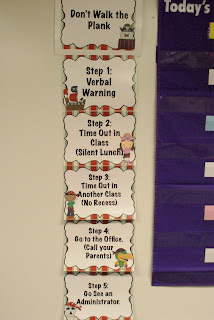 Don't Walk the
Plank
Today's
Step 1:
Verbal
Warning
Step 2:
Time Out in
Class
(Silent Lunch)
Step 3:
Time Out in
Another Class
(No Recess)
Step 4:
Go to the Office.
(Call your
Parents)
Step 5:
Go See an
Administrator.